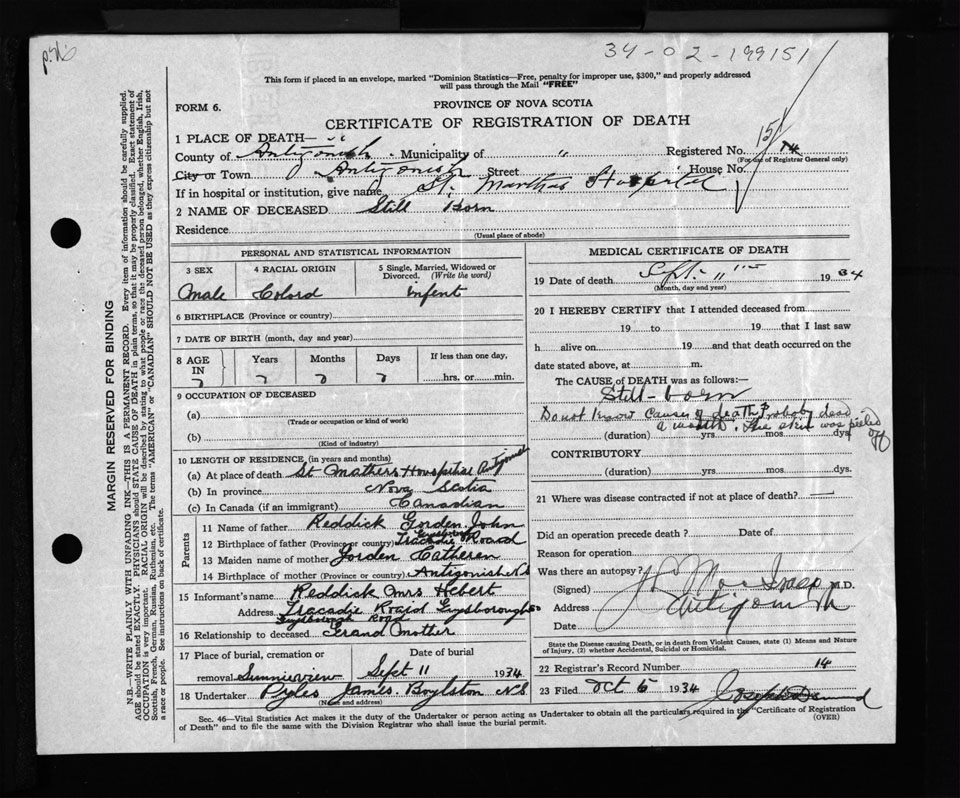 34-02-199151
This form if placed in an envelope, marked "Dominion Statistics—Free, penalty for improper use, $300," and properly addressed
will pass through the Mail "FREE"
FORM 6.
PROVINCE OF NOVA SCOTIA
CERTIFICATE OF REGISTRATION OF DEATH
1 PLACE OF DEATH—
County of Antigonish Municipality of " Registered No. 14
(For use of Registrar General only)
151
City or Town Antigonish Street House No.
If in hospital or institution, give name St. Marthas Hospital
2 NAME OF DECEASED Still Born
Residence
(Usual place of abode)
PERSONAL AND STATISTICAL INFORMATION
3 SEX 4 RACIAL ORIGIN 5 Single, Married, Widowed or Divorced. (Write the word)
Male Colord infent
6 BIRTHPLACE (Province or country)
7 DATE OF BIRTH (month, day and year)
8 AGE IN Years Months Days If less than one day,
hrs. or min.
9 OCCUPATION OF DECEASED
(a)
(Trade or occupation or kind of work)
(b)
(Kind of industry)
10 LENGTH OF RESIDENCE (in years and months)
(a) At place of death St Mathers Hospital
(b) In province Nova Scotia
(c) In Canada (if an immigrant) Canadian
Parents
11 Name of father Reddick Gorden John
12 Birthplace of father (Province or country) Tracadie Road
13 Maiden name of mother Jorden Catheren
14 Birthplace of mother (Province or country) Antigonish N S
15 Informant's name Reddick Mrs Hebert
Address Tracadie Road Guysborough
Guysborough Road
16 Relationship to deceased Grand mother
17 Place of burial, cremation or removal Date of burial
Sunnieview Sept 11 1934
18 Undertaker Pyles James. Boylston N S
(Name and address)
MEDICAL CERTIFICATE OF DEATH
19 Date of death Sept. 11 1934
(Month, day and year)
20 I HEREBY CERTIFY that I attended deceased from
19 to 19 that I last saw
h alive on 19 and that death occurred on the
date stated above, at m.
The CAUSE of DEATH was as follows:—
Still-born
Do not know cause of death. Probably dead
a month. The skin was peeled off
(duration) yrs. mos. dys.
CONTRIBUTORY
(duration) yrs. mos. dys.
21 Where was disease contracted if not at place of death? —
Did an operation precede death? Date of
Reason for operation
Was there an autopsy?
(Signed) M.D.
Address Antigonish
Date
State the Disease causing Death, or in death from Violent Causes, state (1) Means and Nature
of Injury, (2) whether Accidental, Suicidal or Homicidal.
22 Registrar's Record Number 14
23 Filed Oct 5 1934
Sec. 46—Vital Statistics Act makes it the duty of the Undertaker or person acting as Undertaker to obtain all the particulars required in the "Certificate of Registration
of Death" and to file the same with the Division Registrar who shall issue the burial permit.
(OVER)
MARGIN RESERVED FOR BINDING
N.B.—WRITE PLAINLY WITH UNFADING INK—THIS IS A PERMANENT RECORD. Every item of information should be carefully supplied.
AGE should be stated EXACTLY. PHYSICIANS should STATE CAUSE OF DEATH in plain terms, so that it may be properly classified. Exact statement of
OCCUPATION is very important. RACIAL ORIGIN will be described by stating to what people or race the deceased person belonged, whether English, Irish,
Scottish, French, German, Russian, Ruthenian, etc. The terms "AMERICAN" or "CANADIAN" SHOULD NOT BE USED as they express citizenship but not
a race or people. See instructions on back of certificate.